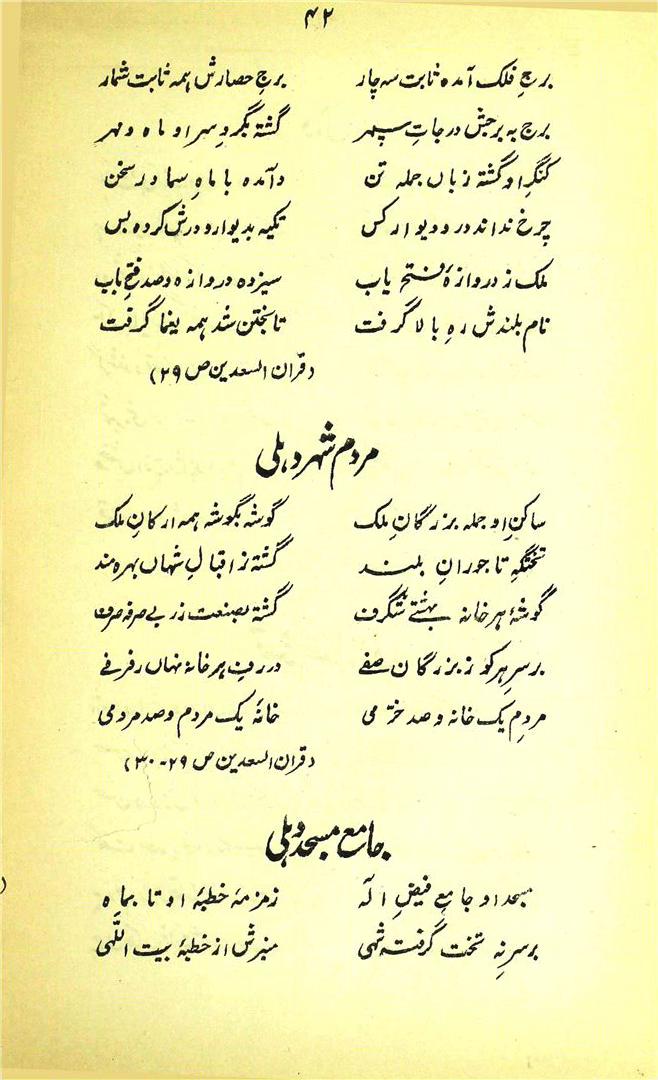 ۴۲
برجِ فلک آمدہ ثابت سہ چار برجِ حصارش ہمہ ثابت شمار
برج بہ برجش درجاتِ سپہر گشتہ بگردِ سرِ او ماہ و مہر
کنگرِ او گشتہ زباں جملہ تن دآمدہ با ماہِ سما در سخن
چرخ نداند در و دیوار کس تکیہ بدیوار و درش کردہ بس
ملک ز دروازۂ فتح یاب سیزدہ دروازہ و صد فتح باب
نام بلندش رہِ بالا گرفت تا بختن شد ہمہ یغما گرفت
(قران السعدین ص ۲۹)
مردم شہر دہلی
ساکنِ او جملہ بزرگانِ ملک گوشہ بگوشہ ہمہ ارکانِ ملک
تختگہِ تاجورانِ بلند گشتہ ز اقبالِ شہاں بہرہ مند
گوشۂ ہر خانہ بہشتے شگرف گشتہ بصنعت زر بے صرفہ صرف
بر سرِ ہر کو ز بزرگان صفے در رہِ ہر خانہ نہاں رفرفے
مردمِ یک خانہ و صد خرّمی خانۂ یک مردم و صد مردمی
(قران السعدین ص ۲۹-۳۰)
جامع مسجد دہلی
مسجد او جامعِ فیضِ الٰہ زمزمۂ خطبۂ او تا بماہ
بر سرِ نہ تخت گرفتہ شہی منبرش از خطبۂ بیت اللّٰہی